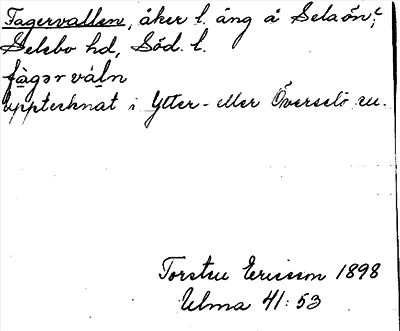 Fagervallen, åker l. äng å Selaön,
Selebo hd, Söd. l.
fàgər váln
Upptecknat i Ytter- eller Överselö sn.
Torsten Ericsson 1898
Ulma 41:53